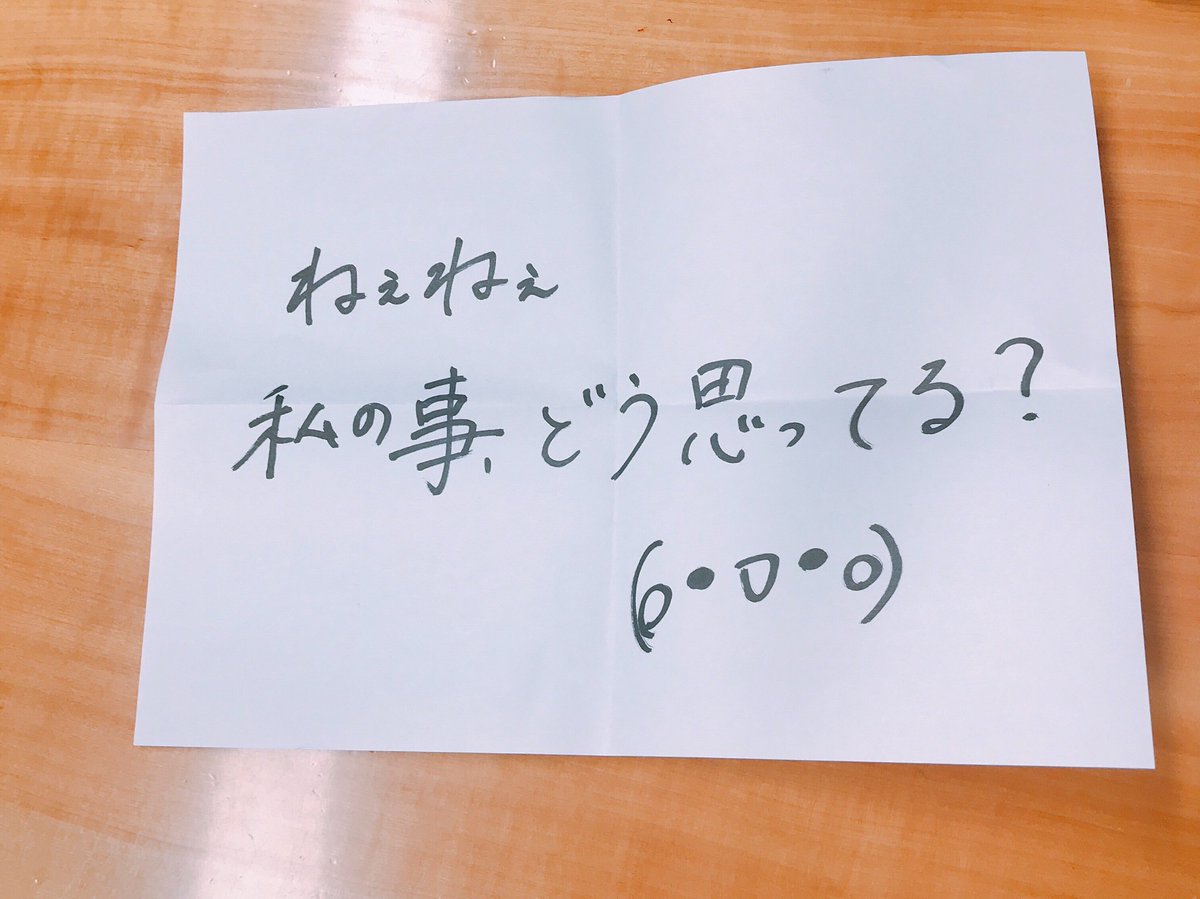 ねぇねぇ
私の事、どう思ってる?
(o•▽•o)